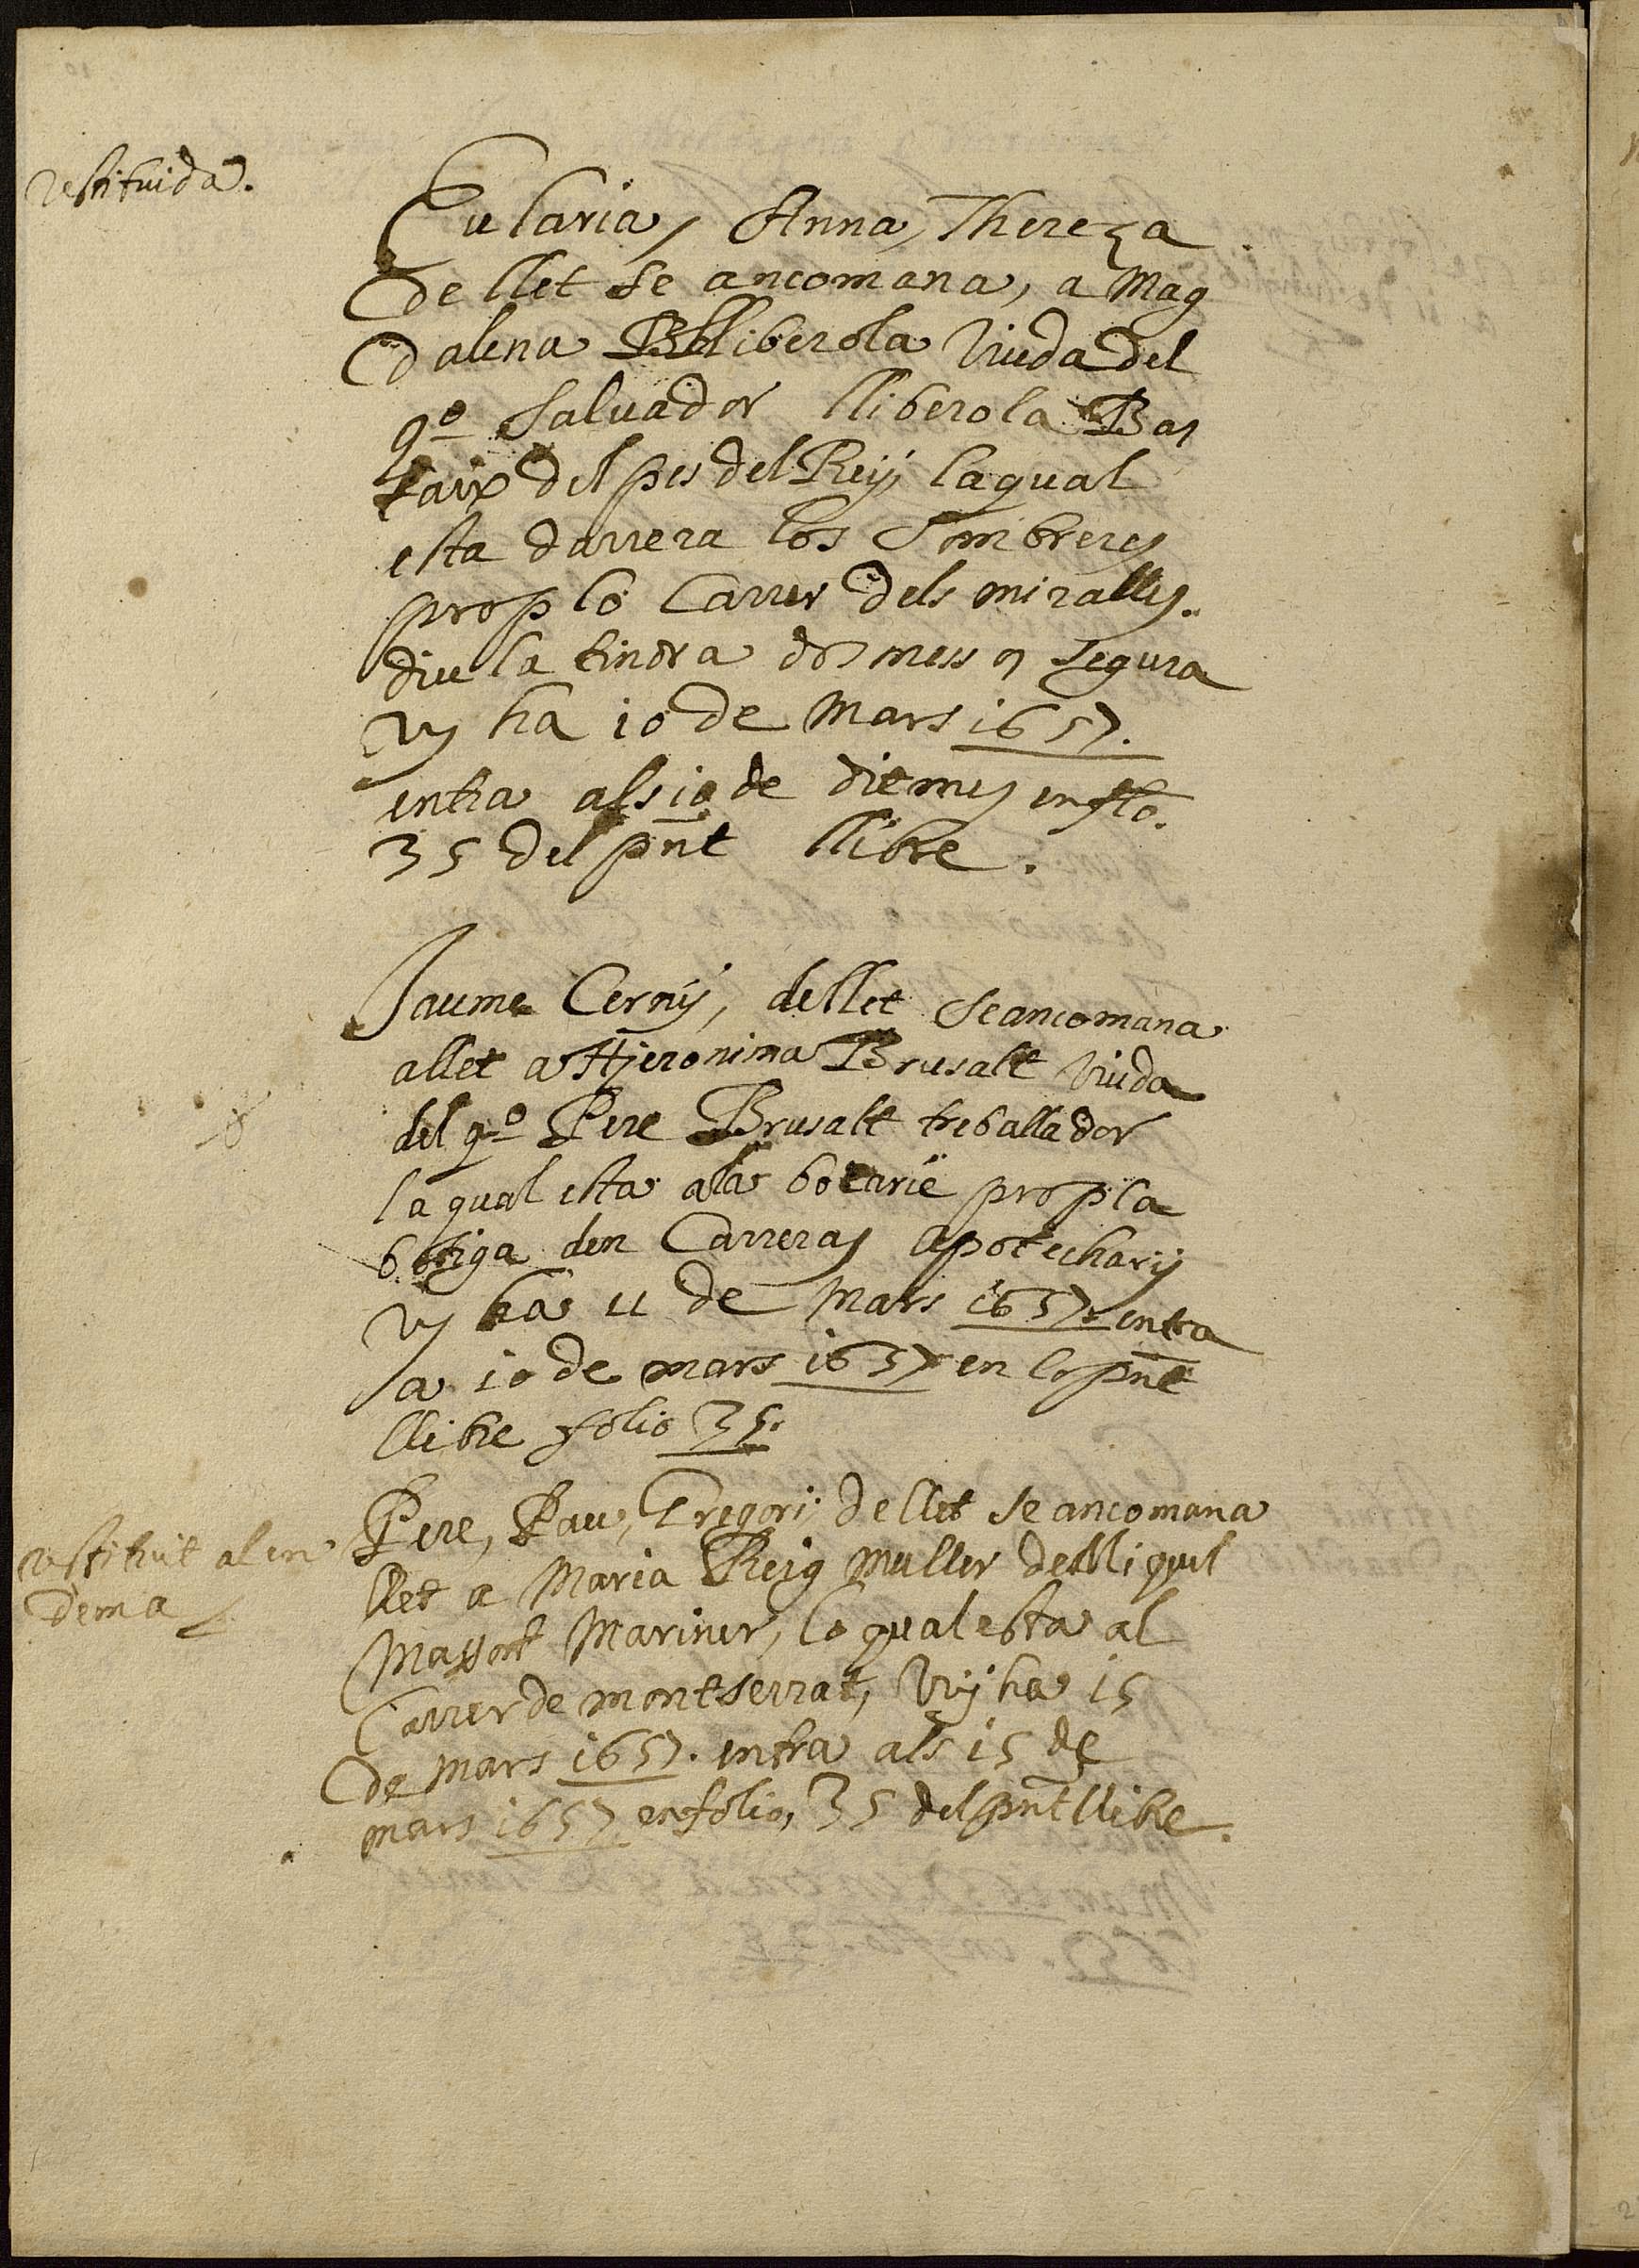 restituida.
Eularia, Anna, Thereza
de llet se ancomana, a Mag
dalena Lliberola viuda del
qº Salvador lliberola Bas
taix del pes del Reÿ laqual
esta darrera los Sombreres
prop lo Carrer dels miralles.
diu la tindra dos mesos segura
vy ha 10 de Mars 1657.
entra als 10 de dit mes en fto.
35 del pnt llibre.
Jaume Cerný, dellet se ancomana
allet a Hjeronima Brusalt viuda
del qº Pere Brusalt treballador
la qual esta ala botarie prop la
botiga den Carreras Apotecharÿ
vy ha 11 de Mars 1657. entra
a 10 de mars 1657 en lo pnt
llibre folio 35.
restituit al en
dema
Pere, Pau, Gregori, de llet se ancomana
llet a Maria Reig muller de Miquel
Massot Mariner, lo qual esta al
Carrer de montserrat, vuÿ ha 15
de Mars 1657. entra als 15 de
mars 1657 en folio, 35 del pnt llibre.